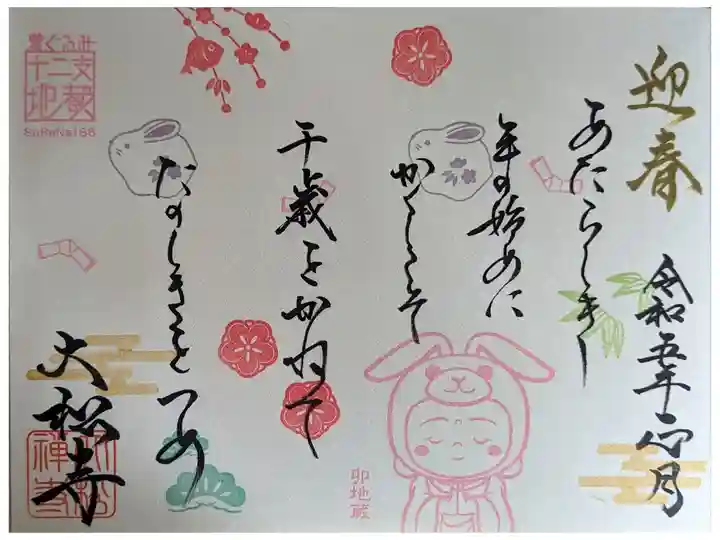 迎春
令和五年 正月
あたらしき
年の始めに
かくしこそ
千歳をかねて
たのしきをつめ
大松寺
着ぐるみ
十二支
地蔵
卯地蔵